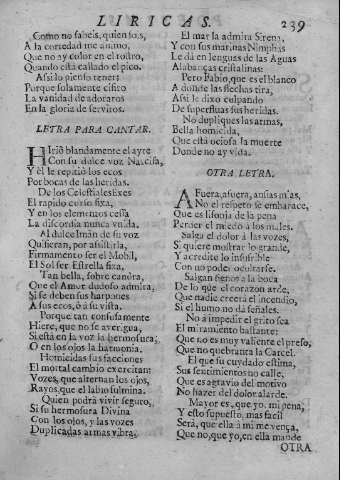 LIRICAS. 239
Como no sabeis, quien sois,
A la cortedad me animo,
Que no ay color en el rostro,
Quando està callado el pico.
Assi lo pienso tener;
Porque solamente cifro
La vanidad de adoraros
En la gloria de serviros.
LETRA PARA CANTAR.
Hirió blandamente el ayre
Con su dulce voz Narcisa,
Y èl le repitiò los ecos
Por bocas de las heridas.
De los Celestiales Exes
El rapido curso fixa,
Y en los elementos cessa
La discordia nunca vnida.
Al dulce Imàn de su voz
Quisieran, por assistirla,
Firmamento ser el Mobil,
El Sol ser Estrella fixa,
Tan bella, sobre canòra,
Que el Amor dudoso admira,
Si se deben sus harpones
A sus ecos, ò à su vista.
Porque tan confusamente
Hiere, que no se averigua,
Si està en la voz la hermosura;
O en los ojos la harmonia.
Homicidas sus facciones
El mortal cambio exercitan:
Vozes, que alternan los ojos,
Rayos, que el labio fulmina.
Quien podrà vivir seguro,
Si su hermosura Divina
Con los ojos, y las vozes
Duplicadas armas vibra;
El mar la admira Sirena,
Y con sus marinas Nimphas
Le dà en lenguas de las Aguas
Alabanças cristalinas:
Pero Fabio, que es el blanco
A donde las flechas tira,
Assi le dixo culpando
De superfluas sus heridas.
No dupliques las armas,
Bella homicida,
Que està ociosa la muerte
Donde no ay vida.
OTRA LETRA.
Afuera, afuera, ansias mias,
No el respeto se embarace,
Que es lisonja de la pena
Perder el miedo à los males.
Salga el dolor à las vozes,
Si quiere mostrar lo grande,
Y acredite lo insufrible
Con no poder ocultarse.
Salgan signos à la boca
De lo que el corazon arde,
Que nadie creerà el incendio,
Si el humo no dà señales.
No à impedir el grito sea
El miramiento bastante:
Que no es muy valiente el preso,
Que no quebranta la Carcel.
El que su cuydado estima,
Sus sentimientos no calle,
Que es agravio del motivo
No hazer del dolor alarde.
Mayor es, que yo, mi pena,
Y esto supuesto, mas facil
Serà, que ella à mi me vença,
Que no, que yo, en ella mande
OTRA